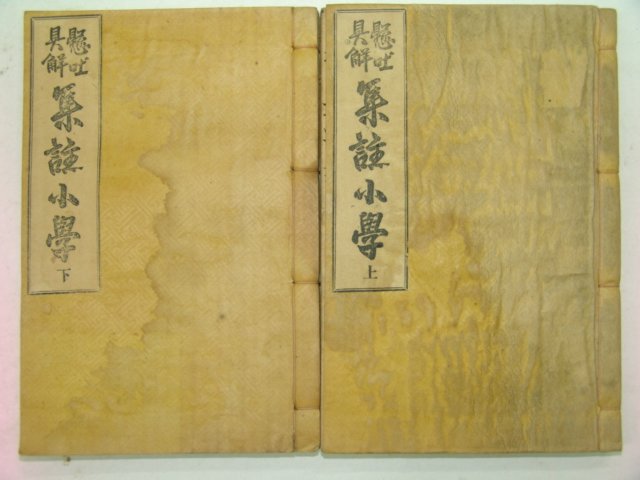 懸吐
具解
集註小學
上
懸吐
具解
集註小學
下